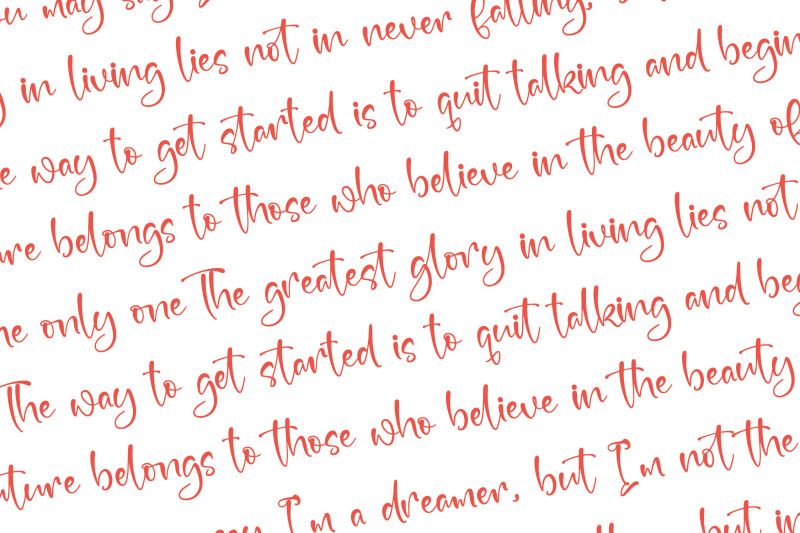 ou may say
in living lies not in never falling,
way to get started is to quit talking and begin
ure belongs to those who believe in the beauty of
he only one The greatest glory in living lies not
The way to get started is to quit talking and beg
uture belongs to those who believe in the beauty
I'm a dreamer, but I'm not the
but in